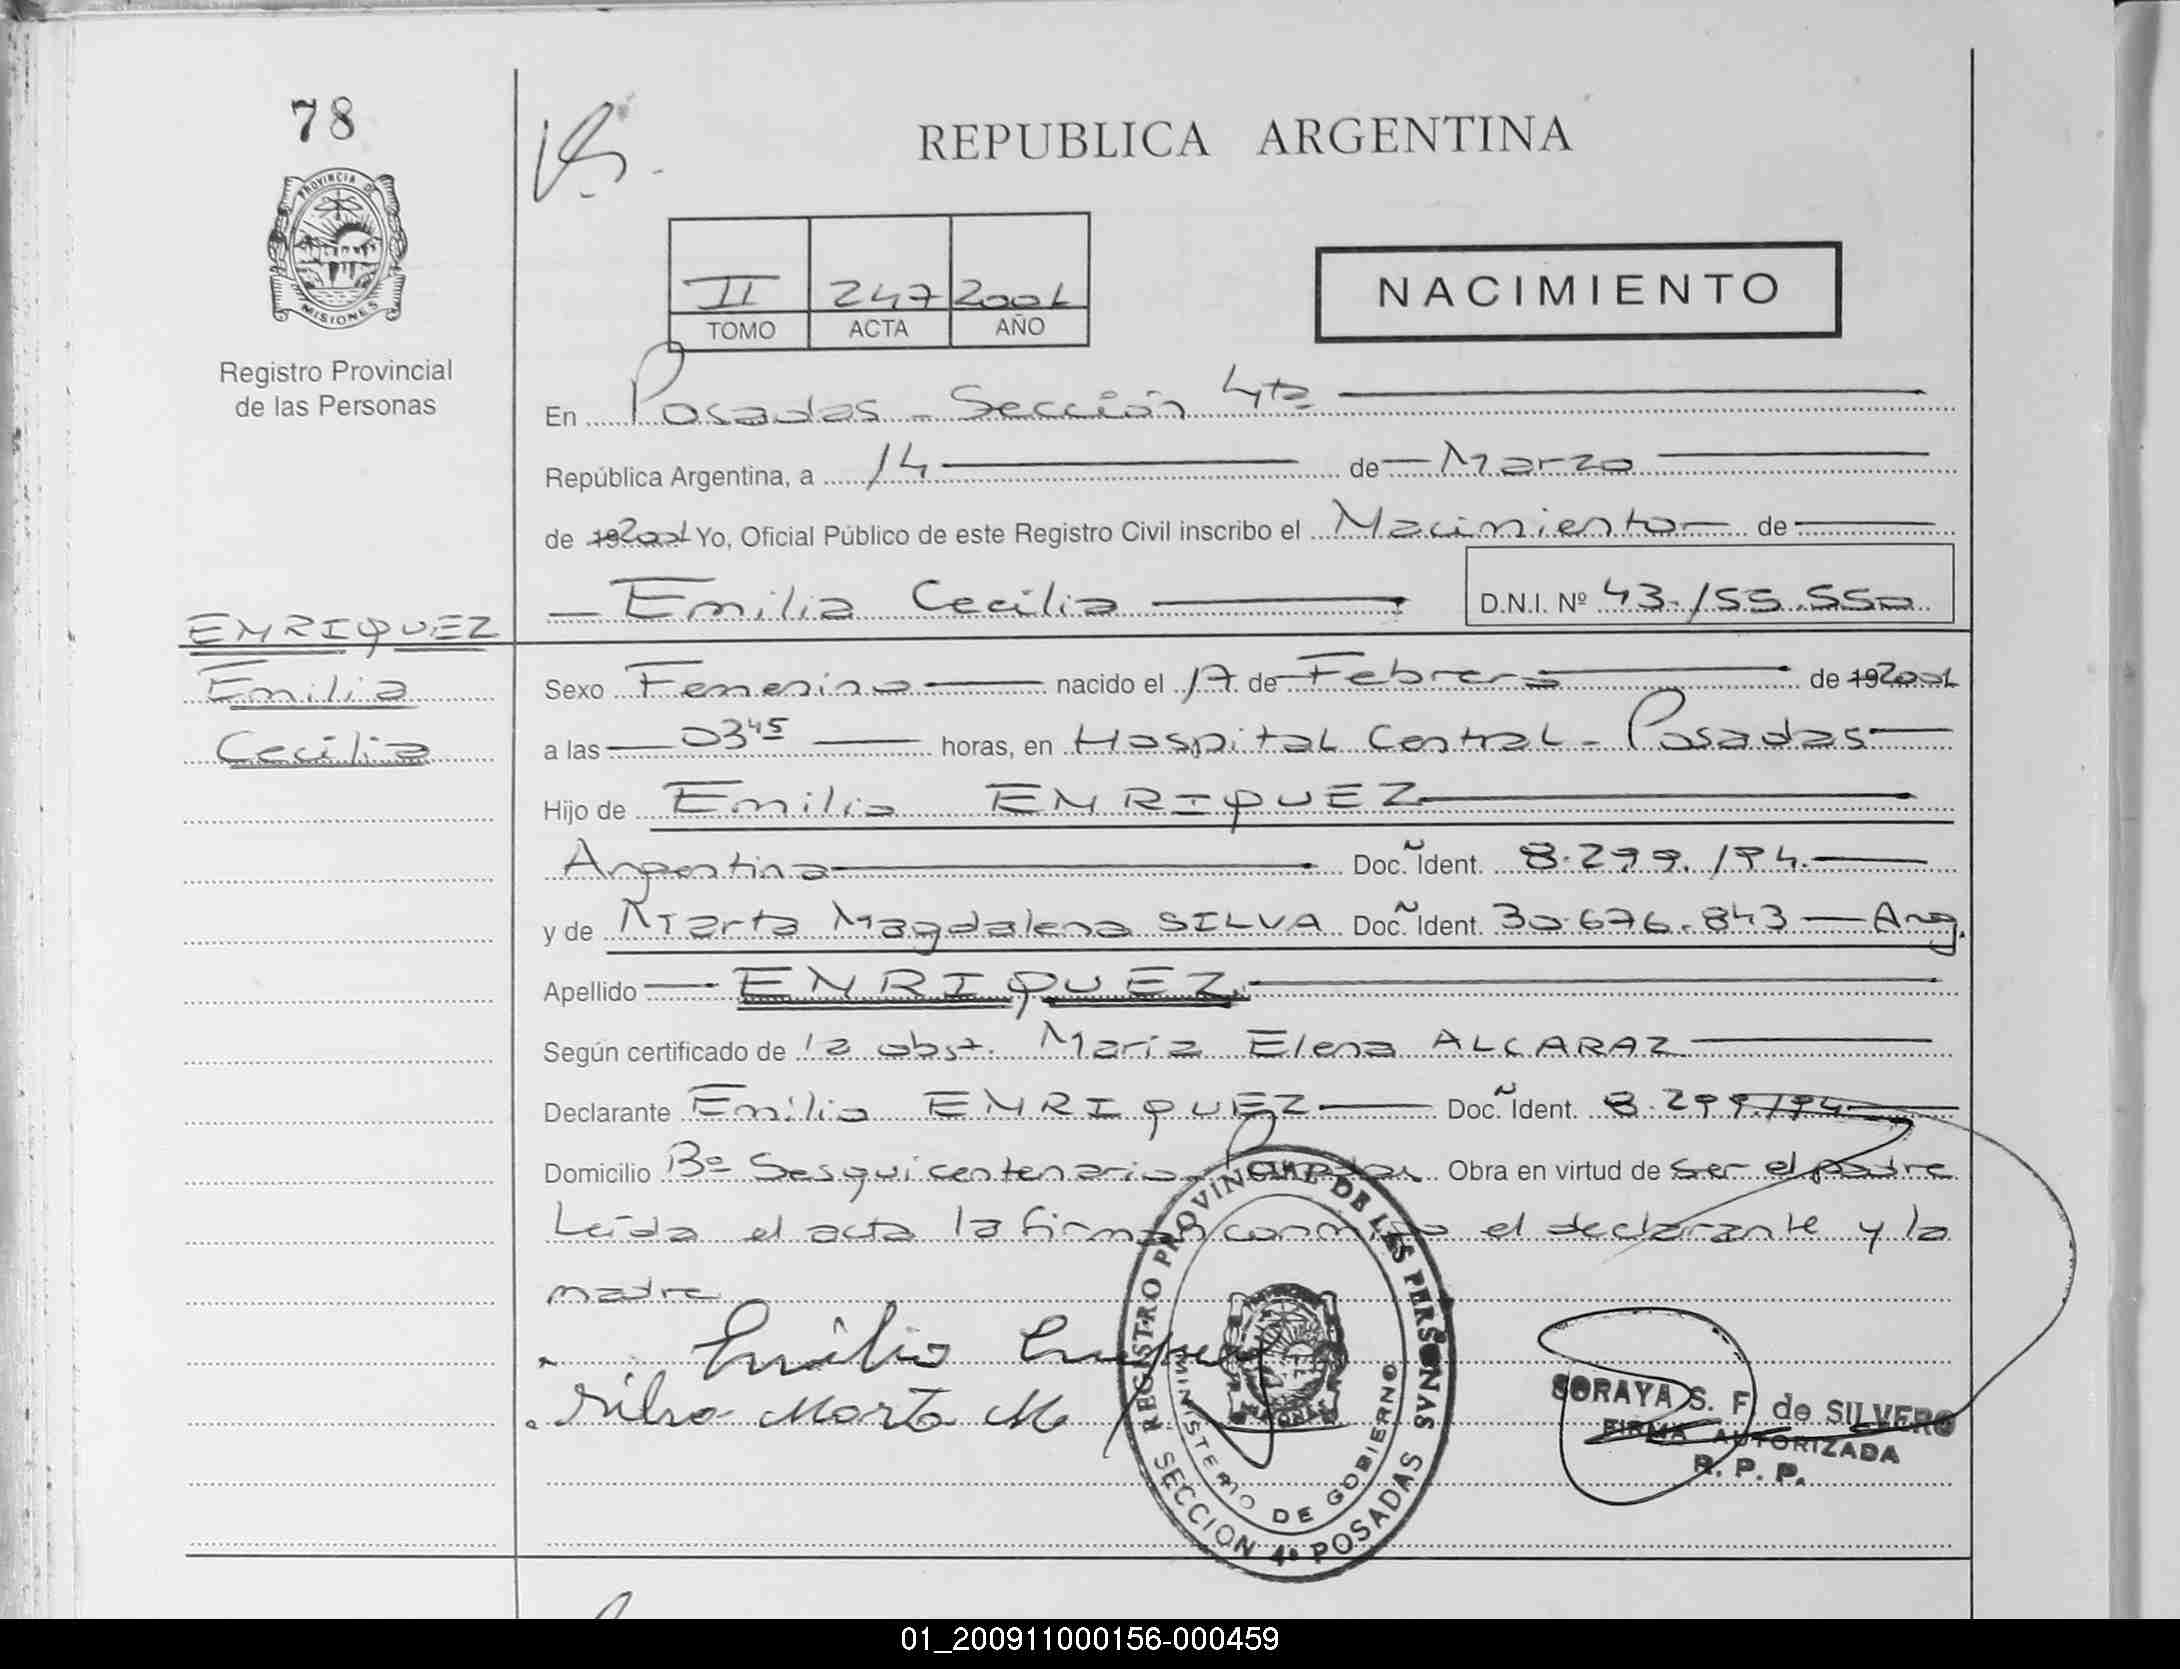 78
REPUBLICA ARGENTINA
PROVINCIA DE
MISIONES
II 247 2001
TOMO ACTA AÑO
NACIMIENTO
Registro Provincial
de las Personas
En Posadas - Sección 4ta
República Argentina, a 14 de Marzo
de 192001 Yo, Oficial Público de este Registro Civil inscribo el Nacimiento de
Emilia Cecilia D.N.I. Nº 43.155.550
ENRIQUEZ
Emilia
Cecilia
Sexo Femenino nacido el 17 de Febrero de 192001
a las 0345 horas, en Hospital Central - Posadas
Hijo de Emilio ENRIQUEZ
Argentino Doc. Ident. 8.299.194.
y de Marta Magdalena SILVA Doc. Ident. 30.676.843 - Arg.
Apellido ENRIQUEZ
Según certificado de la obst. María Elena ALCARAZ
Declarante Emilio ENRIQUEZ Doc. Ident. 8.299.194
Domicilio Bº Sesquicentenario - Obra en virtud de ser el padre
Leída el acta la firman conmigo el declarante y la
madre
Emilio Enriquez
Silva Marta M
REGISTRO PROVINCIAL DE LAS PERSONAS
MINISTERIO DE GOBIERNO
SECCION 4ª POSADAS
SORAYA S. F. de SILVERO
FIRMA AUTORIZADA
R. P. P.
01_200911000156-000459